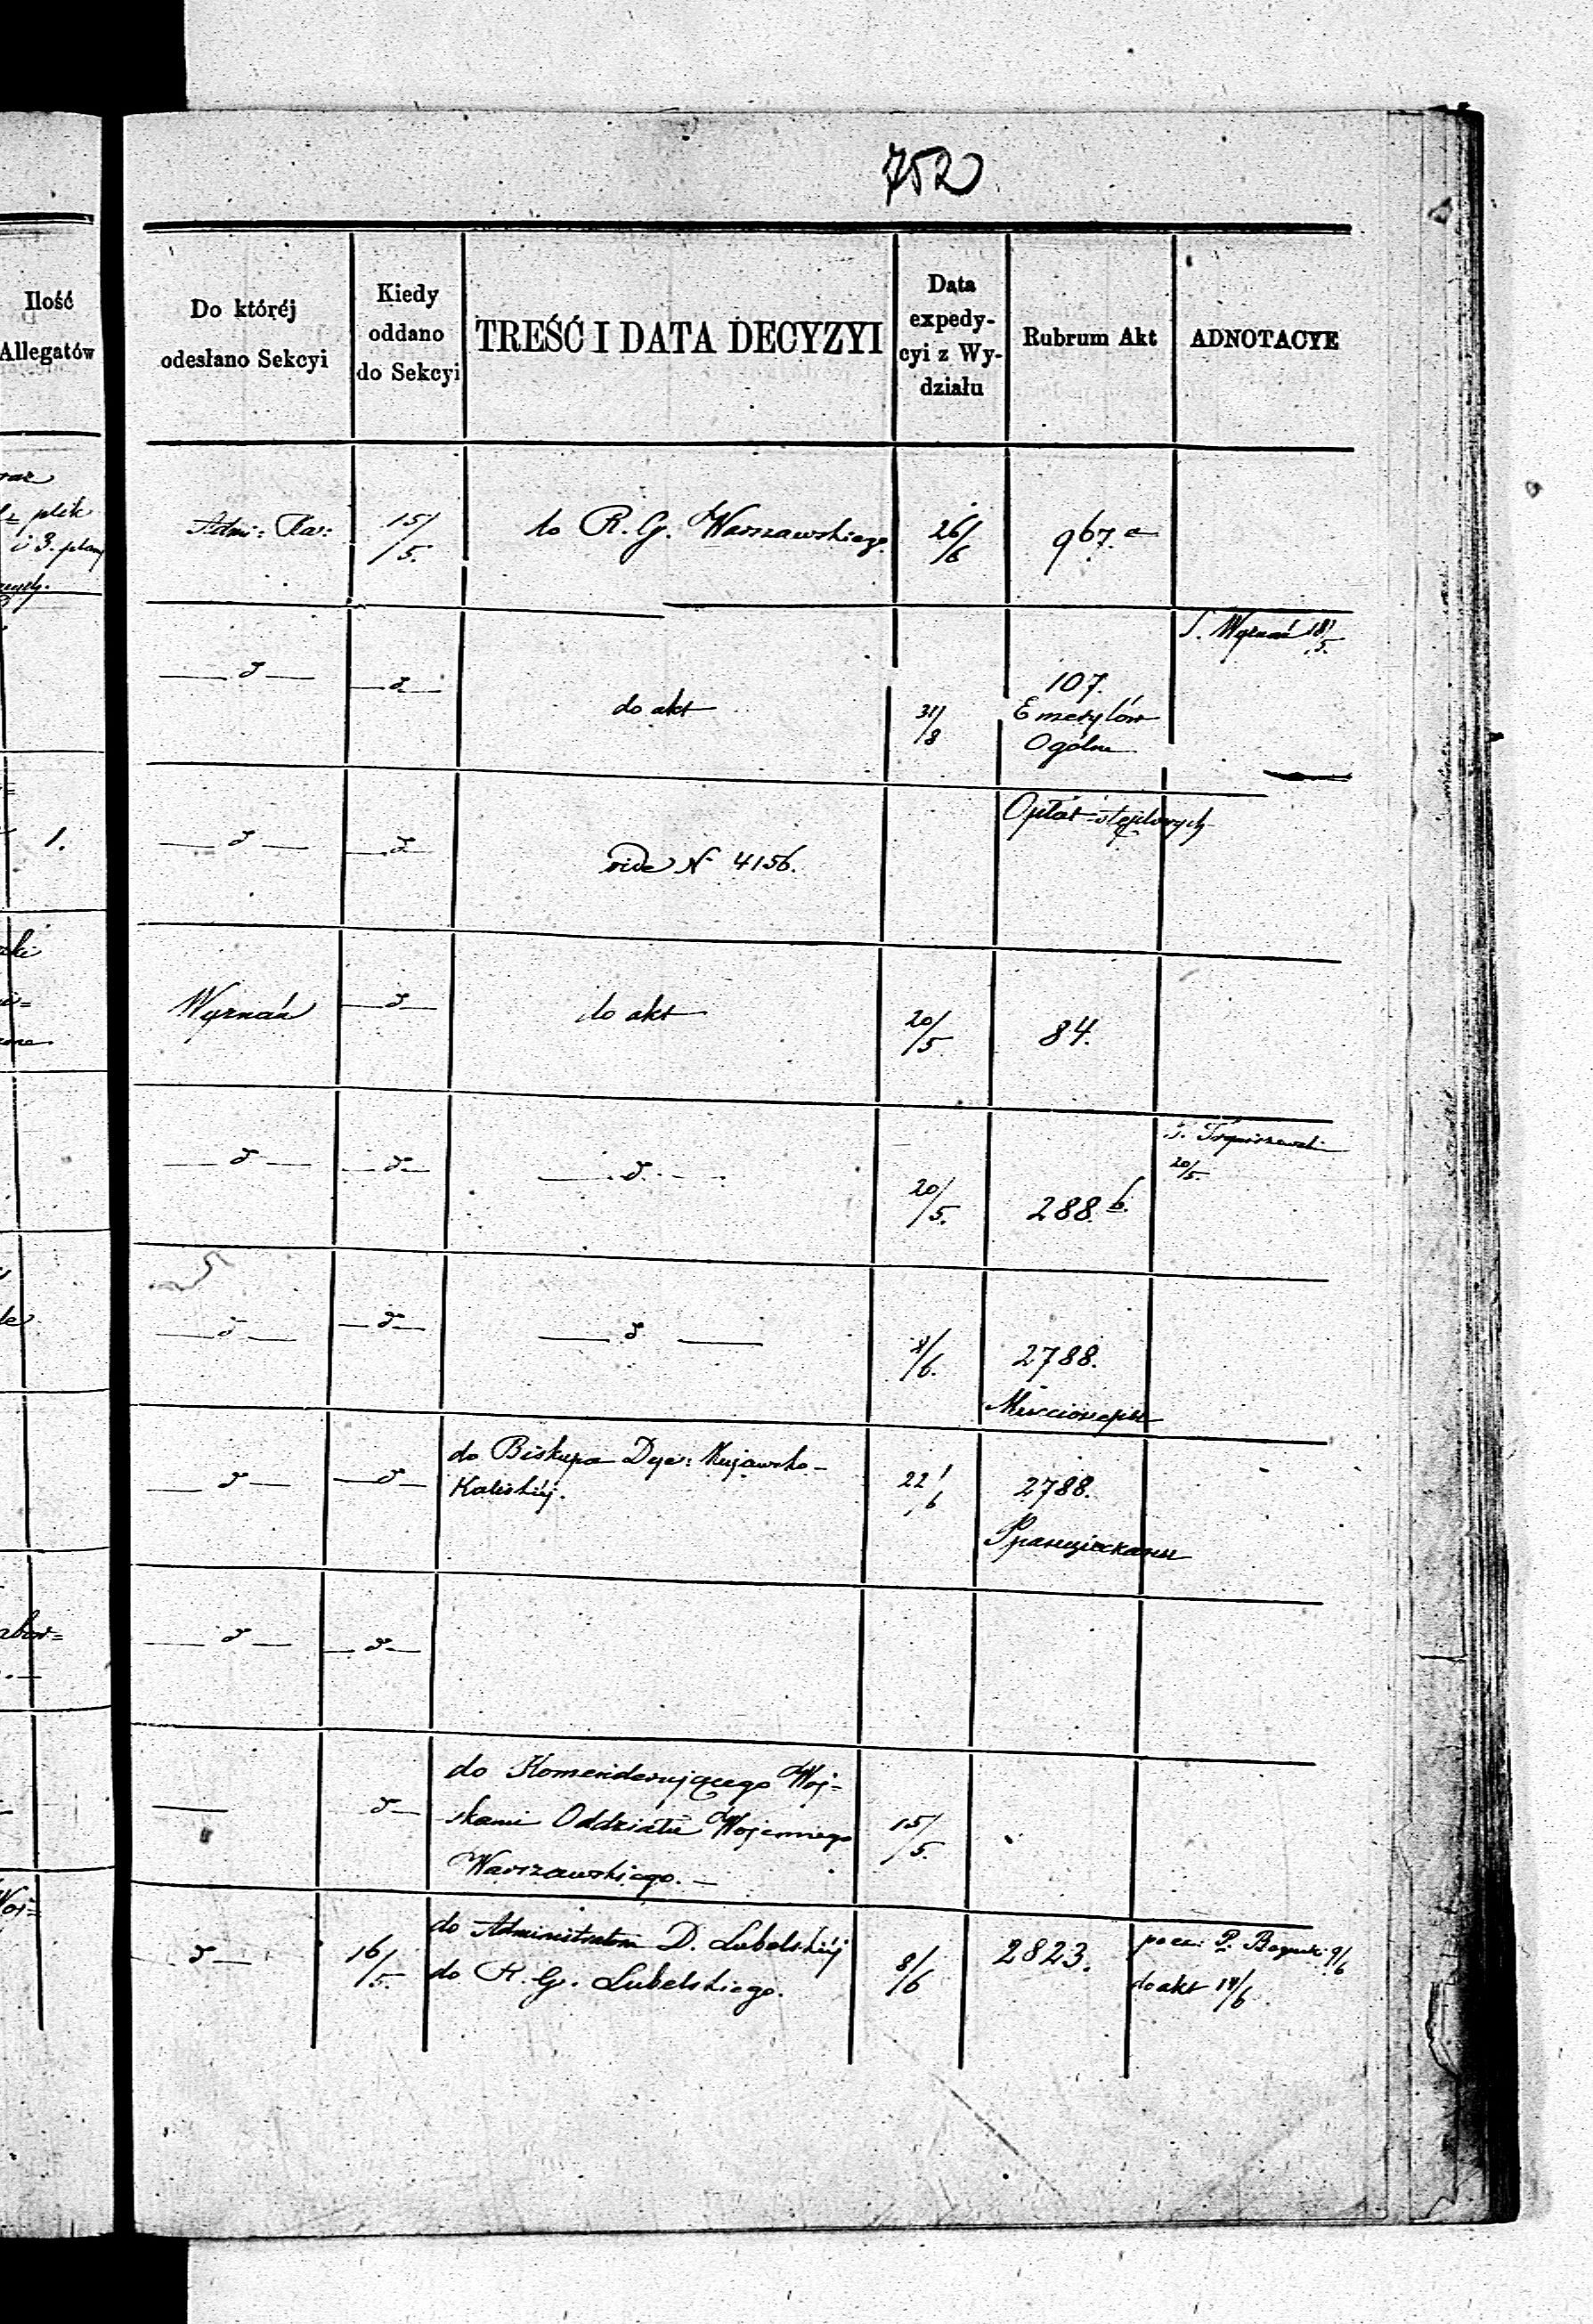 752
Ilość
Allegatów
Do któréj
odesłano Sekcyi
Kiedy
oddano
do Sekcyi
TREŚĆ I DATA DECYZYI
Data
expedy-
cyi z Wy-
działu
Rubrum Akt
ADNOTACYE
plik
i 3.
Admi:
15/5.
do R. G. Warszawskiego
26/6
967. a
— d —
— d —
do akt
31/8
107.
Emerytów
Ogólne
S. Wyznań 18/5.
1.
— d —
— d —
vide N 4156.
Opłat stęplowych
Wyznań
— d —
do akt
20/5
84.
— d —
— d —
— d —
20/5.
288. b.
20/5.
— d —
— d —
— d —
8/6.
2788.
— d —
— d —
do Biskupa Dyec: Kujawsko-
Kaliskiéj.
22/6
2788.
— d —
— d —
—
d —
do Komenderującego Woj-
skami Oddziału Wojennego
Warszawskiego. —
15/5.
d —
16/5.
do Administratora D. Lubelskiéj
do R. G. Lubelskiego.
8/6
2823.
P. 9/6
do akt 14/6